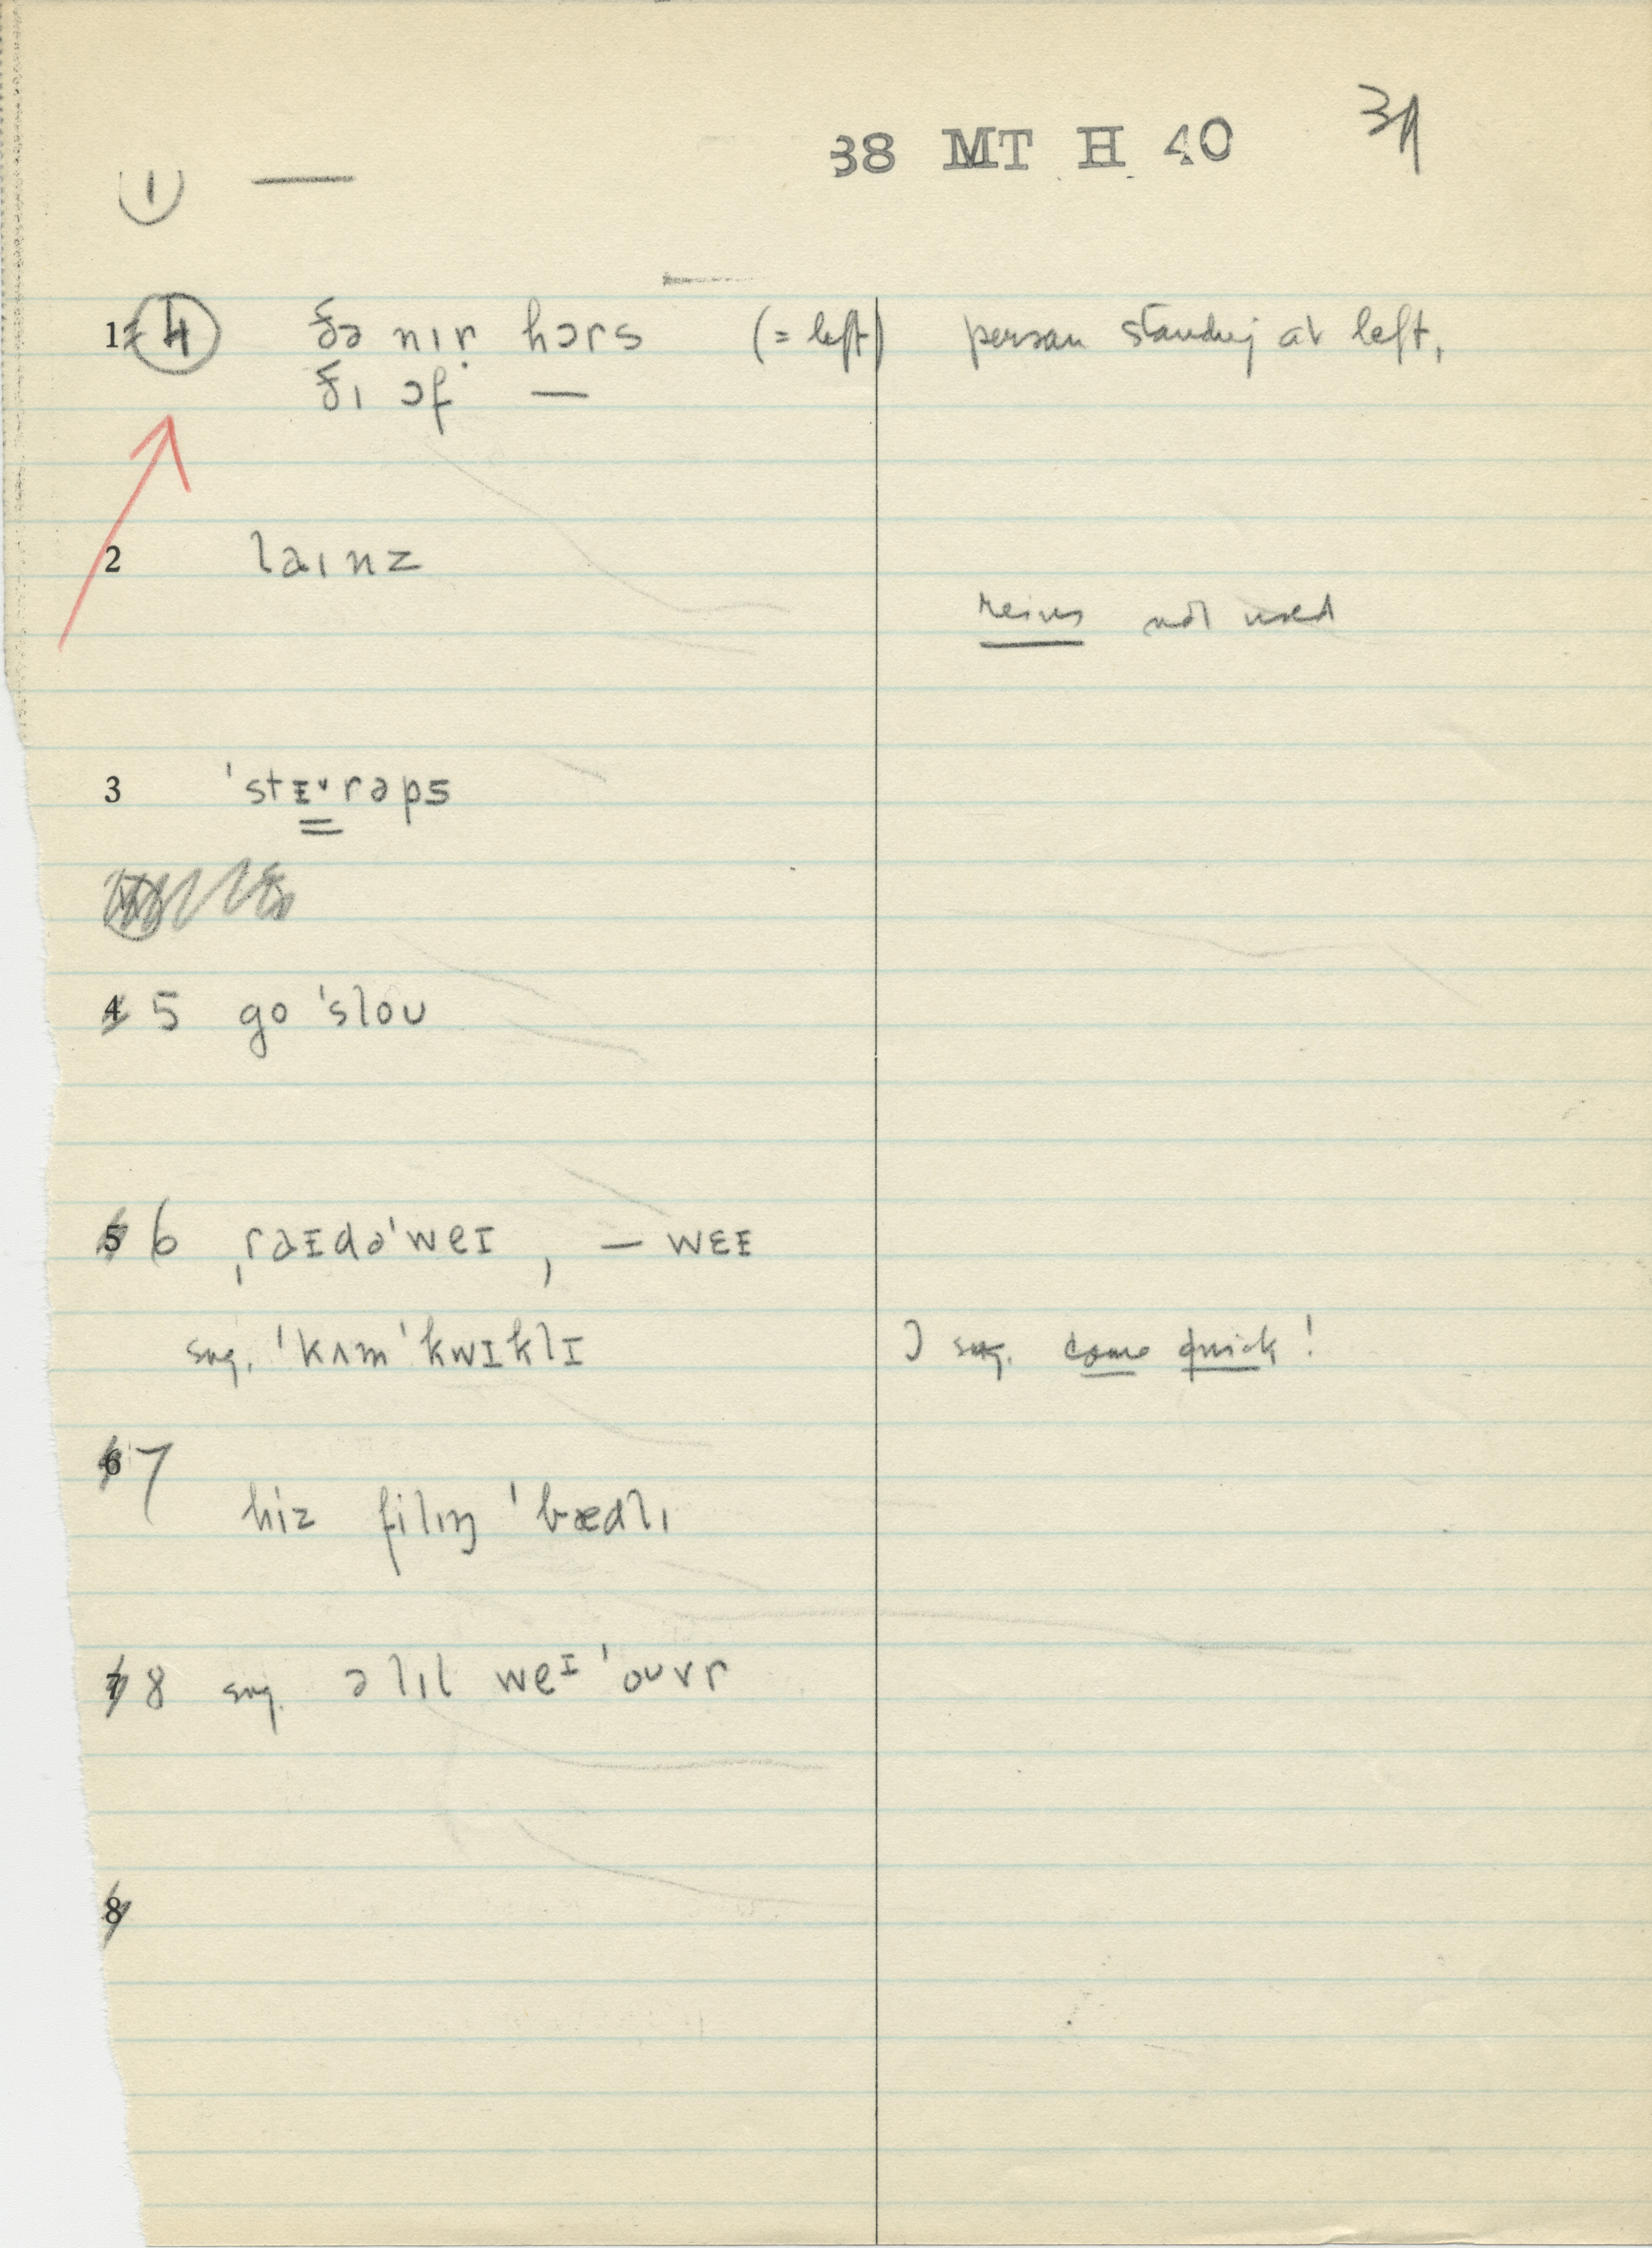 38 MT H 40 39
① —
1 ④ ðə nɪṛ hɔrs (= left) person standing at left,
ðɪ ɔf —
2 laɪnz
reins not used
3 ˈstɪ˅rəps
4 5 go ˈsloʊ
5 6 ˌraɪdəˈweɪ , — wɛɪ
sug. ˈkʌm ˈkwɪklɪ I sug. come quick!
6 7
hiz filɪŋ ˈbædlɪ
7 8 sug. ə lɪl weɪ ˈoʊvr
8